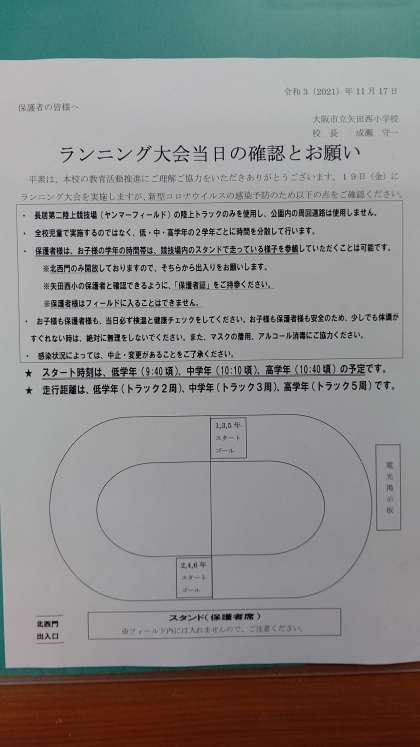 令和3（2021）年11月17日
保護者の皆様へ
大阪市立矢田西小学校
校 長　成瀬　守一
ランニング大会当日の確認とお願い
平素は、本校の教育活動推進にご理解ご協力をいただきありがとうございます。19日（金）に
ランニング大会を実施しますが、新型コロナウイルスの感染予防のため以下の点をご確認ください。
・ 長居第二陸上競技場（ヤンマーフィールド）の陸上トラックのみを使用し、公園内の周回道路は使用しません。
・ 全校児童で実施するのではなく、低・中・高学年の2学年ごとに時間を分散して行います。
・ 保護者様は、お子様の学年の時間帯は、競技場内のスタンドで走っている様子を参観していただくことは可能です。
※北西門のみ開放しておりますので、そちらから出入りをお願いします。
※矢田西小の保護者と確認できるように、「保護者証」をご持参ください。
※保護者様はフィールドに入ることはできません。
・ お子様も保護者様も、当日必ず検温と健康チェックをしてください。お子様も保護者様も安全のため、少しでも体調が
すぐれない時は、絶対に無理をしないでください。また、マスクの着用、アルコール消毒にご協力ください。
・ 感染状況によっては、中止・変更があることをご了承ください。
★ スタート時刻は、低学年（9:40頃）、中学年（10:10頃）、高学年（10:40頃）の予定です。
★ 走行距離は、低学年（トラック2周）、中学年（トラック3周）、高学年（トラック5周）です。
1,3,5年
スタート
ゴール
電光掲示板
2,4,6年
スタート
ゴール
北西門
出入口
スタンド（保護者席）
※フィールド内には入れませんので、ご注意ください。